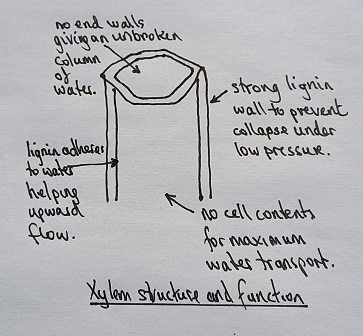 no end walls
giving an unbroken
column
of
water.
strong lignin
wall to prevent
collapse under
low pressure.
lignin adheres
to water
helping
upward
flow.
no cell contents
for maximum
water transport.
Xylem structure and function